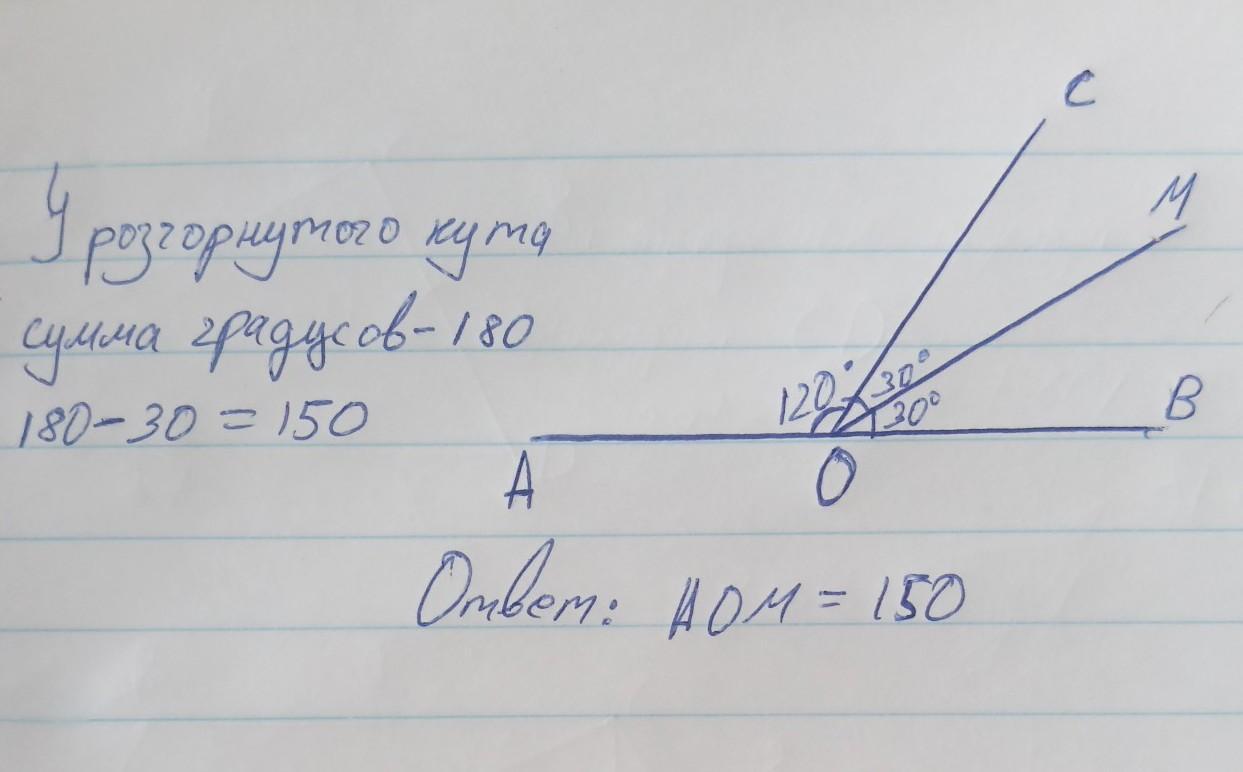 У розгорнутого кута
сумма градусов-180
180-30=150
C
M
120° 30°
30° B
A O
Ответ: AOM = 150